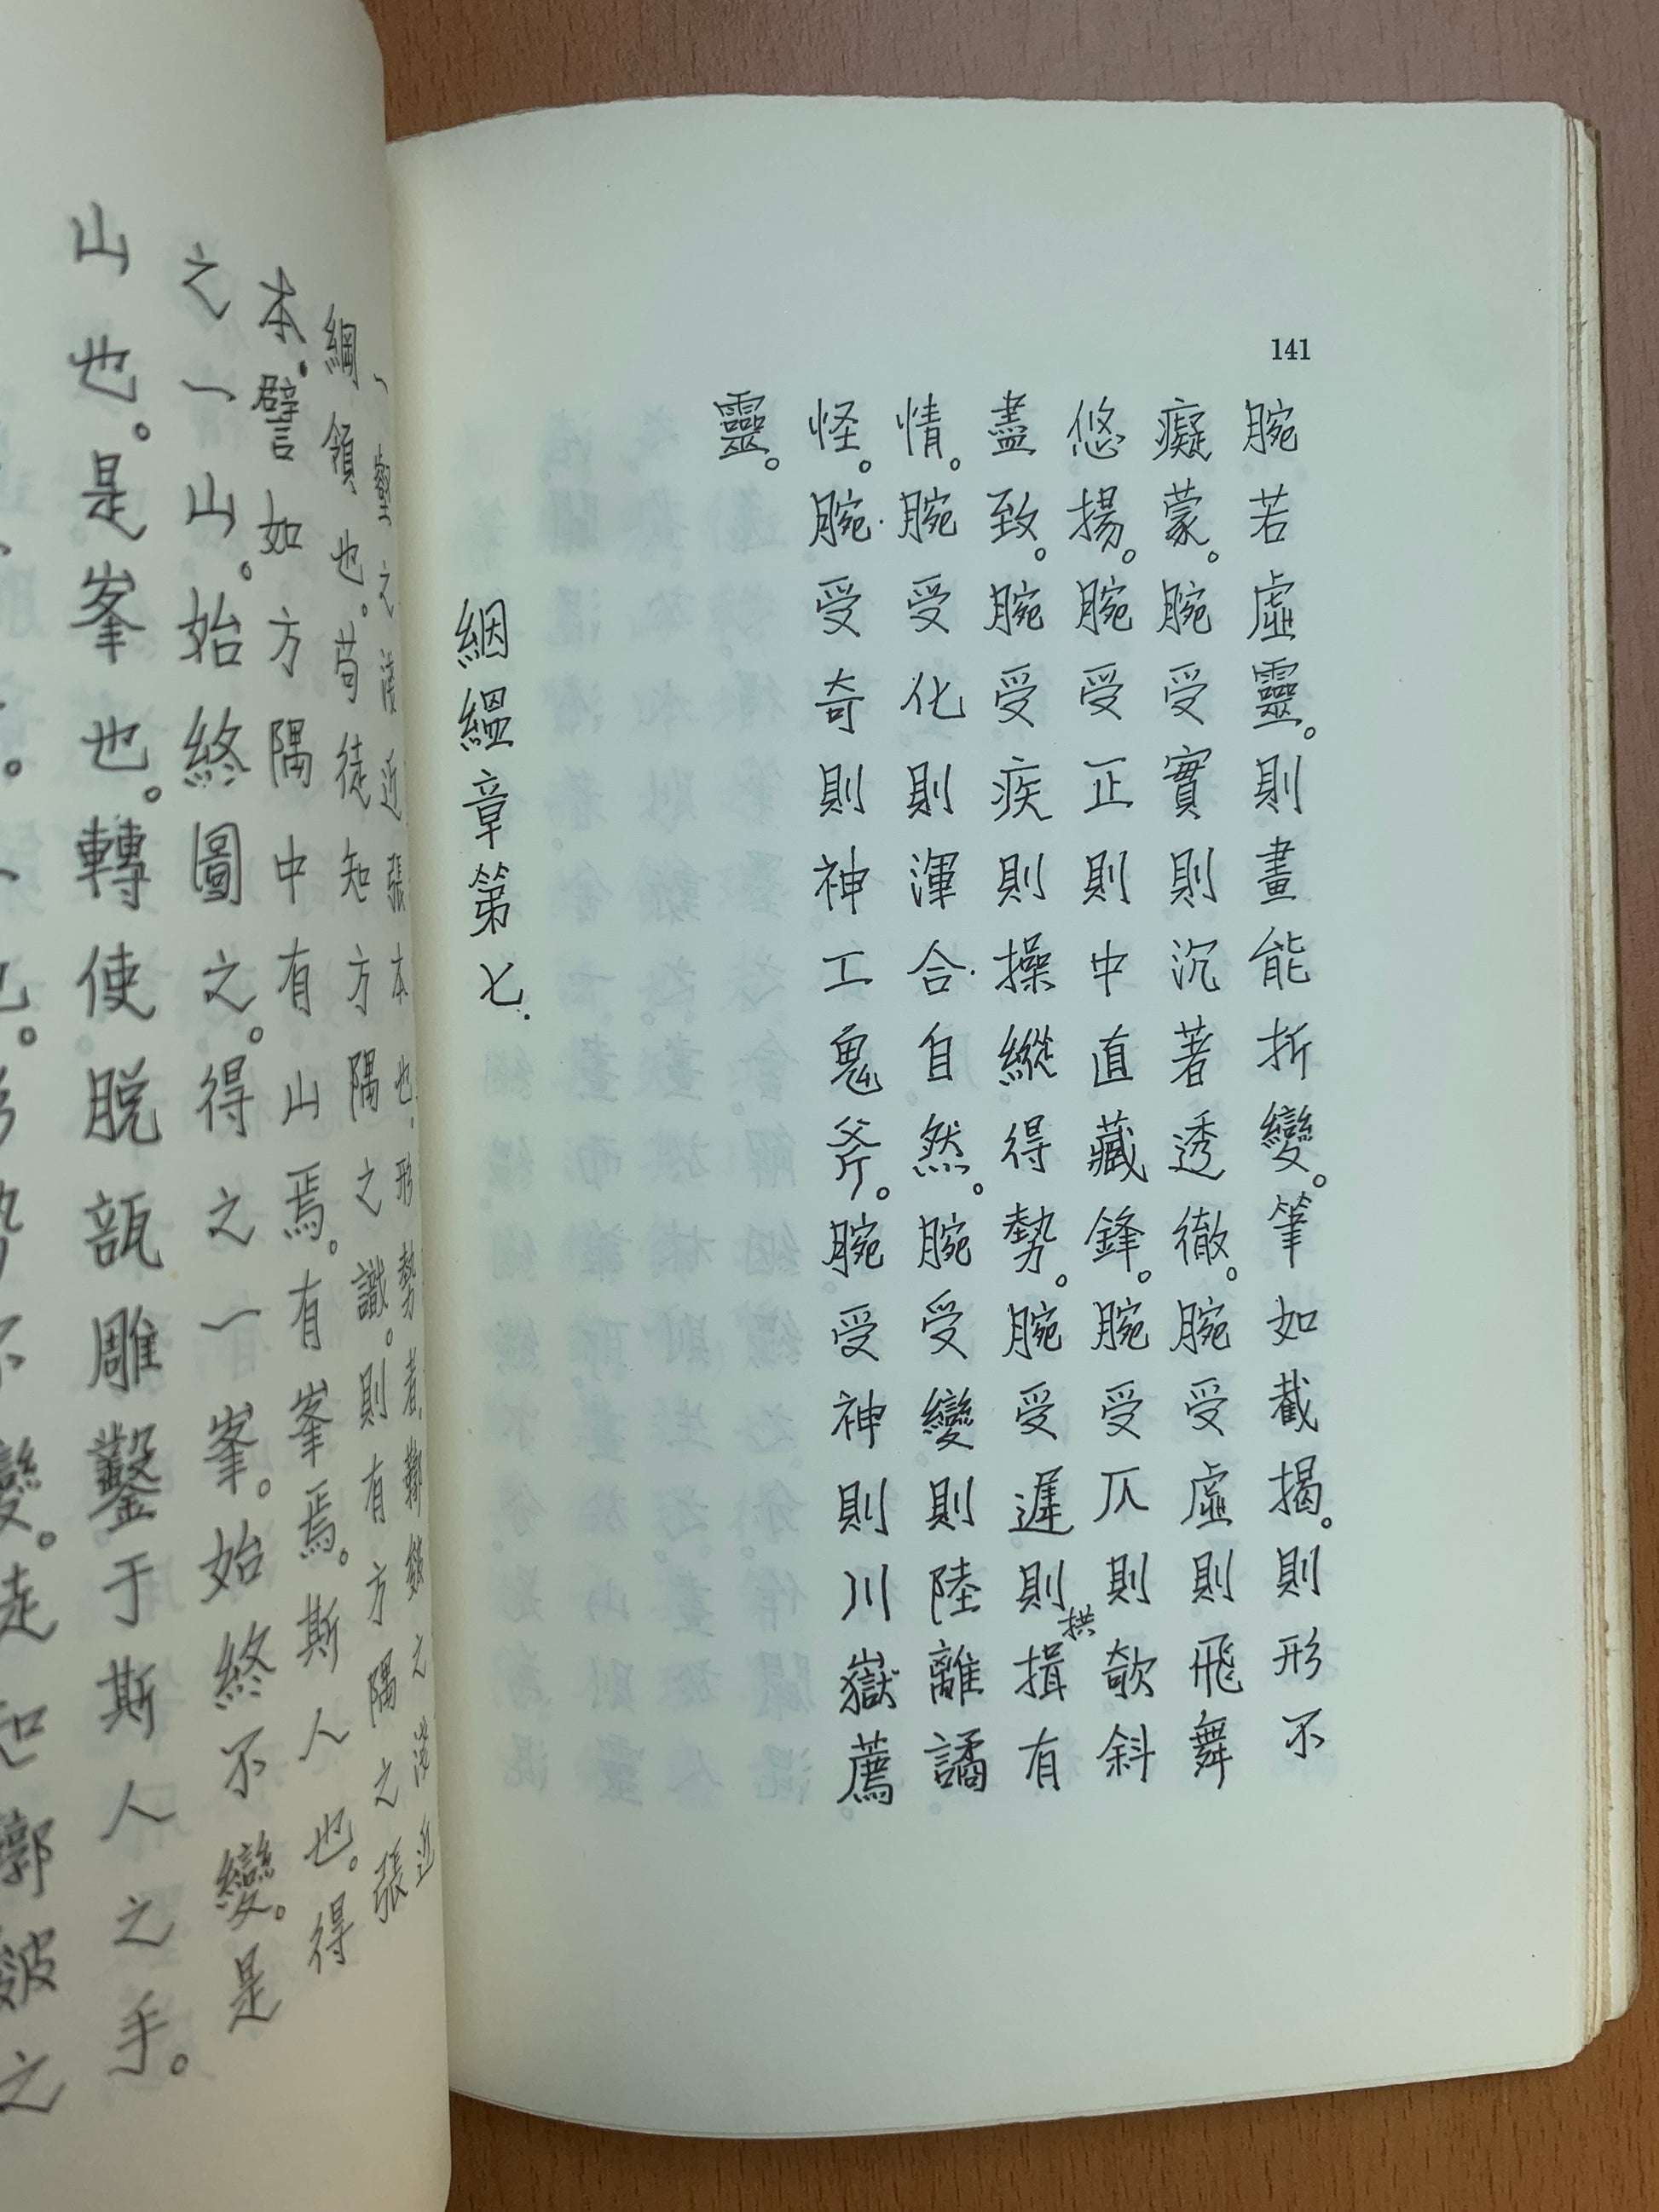 141
腕若虛靈。則畫能折變。筆如截揭。則形不
癡蒙。腕受實則沉著透徹。腕受虛則飛舞
悠揚。腕受正則中直藏鋒。腕受仄則欹斜
盡致。腕受疾則操縱得勢。腕受遲則拱揖有
情。腕受化則渾合.自然。腕受變則陸離譎
怪。腕.受奇則神工鬼斧。腕受神則川嶽薦
靈。
絪縕章第七.
一壑之淺近張本也.形勢者.之淺近
綱領也。苟徒知方隅之識。則有方隅之張
本.譬如方隅中有山焉。有峯焉。斯人也。得
之一山。始終圖之。得之一峯。始終不變。是
山也。是峯也。轉使脫瓿雕鑿于斯人之手。